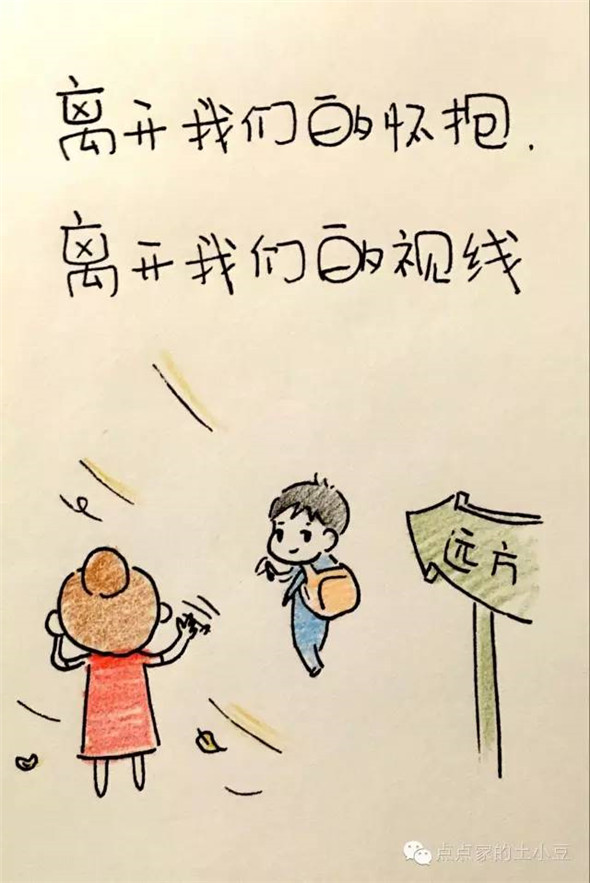 离开我们的怀抱.
离开我们的视线
远方
点点家的土小豆